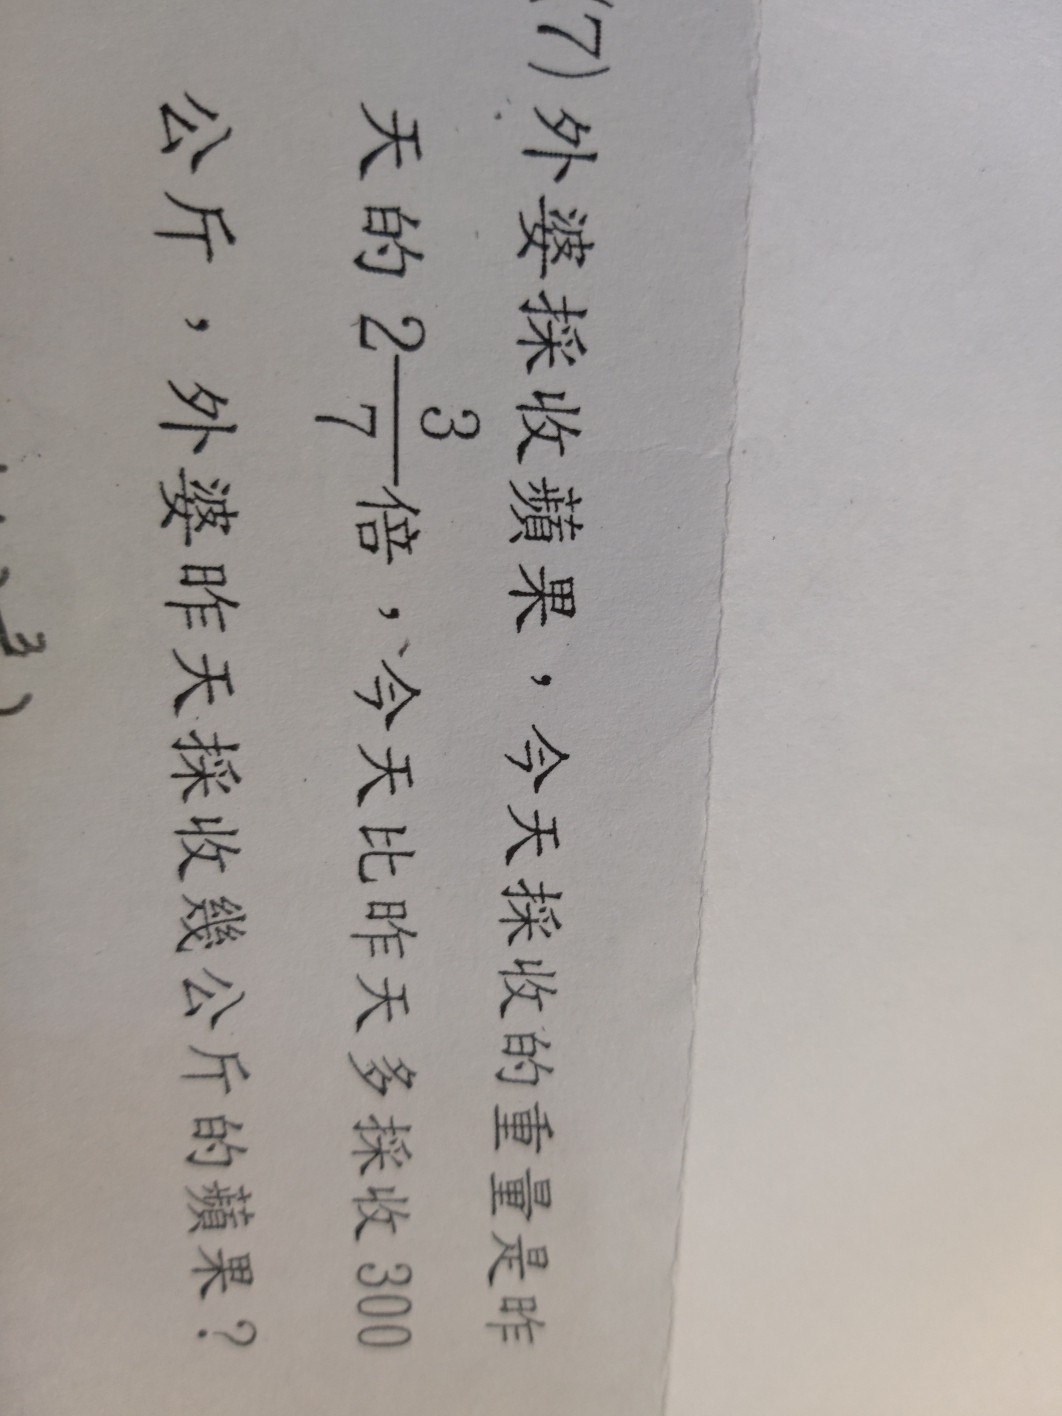 (7)外婆採收蘋果,今天採收的重量是昨
天的2 3/7倍,今天比昨天多採收300
公斤,外婆昨天採收幾公斤的蘋果?